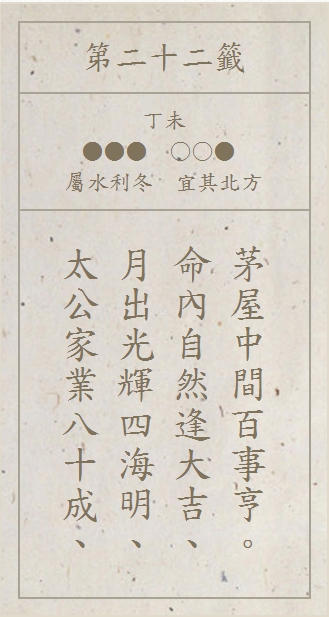 第二十二籤
丁未
●●● ○○●
屬水利冬 宜其北方
太公家業八十成、
月出光輝四海明、
命內自然逢大吉、
茅屋中間百事亨。